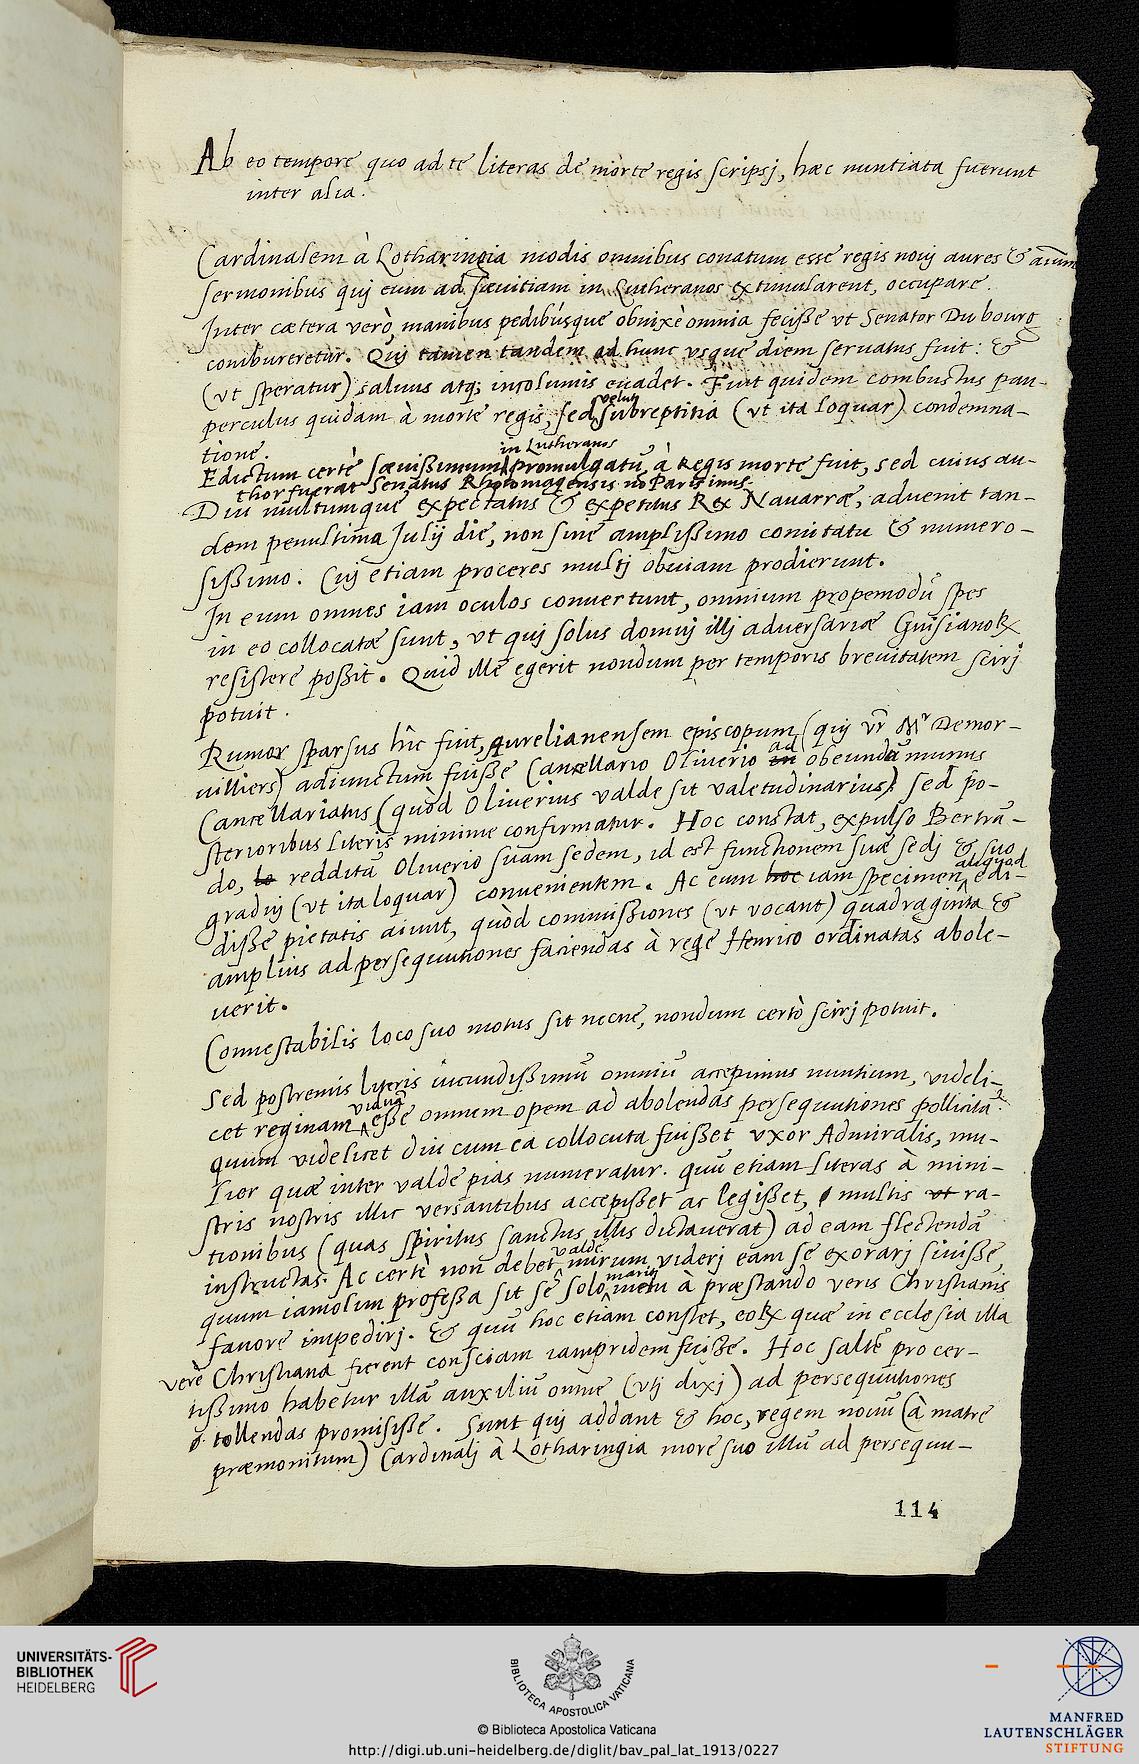 Ab eo tempore quo ad te literas de morte regis scripsj, hæc nuntiata fuerunt
inter alia.
Cardinalem à Lotharingia modis omnibus conatum esse regis novj aures &
sermonibus quj eum ad sæuitiam in Lutheranos extimularent, occupare.
Inter cætera verò, manibus pedibúsque obnixè omnia fecisse vt Senator Du bourg
combureretur. Quj tamen tandem ad hunc vsque diem seruatus fuit: &
(vt speratur) saluus atq; incolumis euadet. Fuit quidem combustus pau-
perculus quidam à morte regis, sed velut subreptitia (vt ita loquar) condemna-
tione.
Edictum certè sæuissimum in Lutheranos promulgatũ à Regis morte fuit, sed cuius au-
thor fuerat Senatus Rhotomagensis nõ Parisinus.
Diu multumque expectatus & expetitus Rex Nauarræ, aduenit tan-
dem penultima Julij die, non sine amplissimo comitatu & numero-
sissimo. Cuj etiam proceres multj obuiam prodierunt.
In eum omnes iam oculos conuertunt, omnium propemodũ spes
in eo collocatæ sunt, vt quj solus domuj illj aduersariæ Guisianoꝝ
resistere possit. Quid ille egerit nondum per temporis breuitatem scirj
potuit.
Rumor sparsus hîc fuit, Aurelianensem episcopum (quj vr̃ Mr Demor-
uilliers) adiunctum fuisse Cancellario Oliuerio in ad obeundũ munus
Cancellariatus (quòd Oliuerius valde sit valetudinarius) sed po-
sterioribus literis minime confirmatur. Hoc constat, expulso Bertrã-
do, redditã Oliuerio suam sedem, id est functionem suæ sedj & suo
graduj (vt ita loquar) conuenientem. Ac eum hoc iam specimen aliquod edi-
disse pietatis aiunt, quòd commissiones (vt vocant) quadraginta &
amplius ad persequutiones faciendas à rege Henrico ordinatas abole-
uerit.
Connestabilis loco suo motus sit necne, nondum certò scirj potuit.
Sed postremis literis iucundissimũ omniũ accepimus nuntium, videli-
cet reginam viduã esse omnem opem ad abolendas persequutiones pollicitã:
quum videlicet diu cum ea collocuta fuisset vxor Admiralis, mu-
lier quæ inter valde pias numeratur. quũ etiam literas à mini-
stris nostris illic versantibus accepisset ac legisset, multis vt ra-
tionibus (quas spiritus sanctus illis dictauerat) ad eam flectendã
instructas. Ac certè non debet valde mirum viderj eam se exorarj siuisse,
quum iamolim professa sit se solo mariti metu à præstando veris Christianis
fauore impedirj. & quũ hoc etiam constet, eoꝝ quæ in ecclesia illa
verè Christiana fierent consciam iampridem fuisse. Hoc saltẽ pro cer-
tissimo habetur illã auxiliũ omne (vtj dixj) ad persequutiones
tollendas promisisse. Sunt quj addant & hoc, regem nouũ (à matre
præmonitum) Cardinalj à Lotharingia more suo illũ ad persequu-
114
UNIVERSITÄTS-
BIBLIOTHEK
HEIDELBERG
BIBLIOTECA APOSTOLICA VATICANA
© Biblioteca Apostolica Vaticana
http://digi.ub.uni-heidelberg.de/diglit/bav_pal_lat_1913/0227
MANFRED
LAUTENSCHLÄGER
STIFTUNG